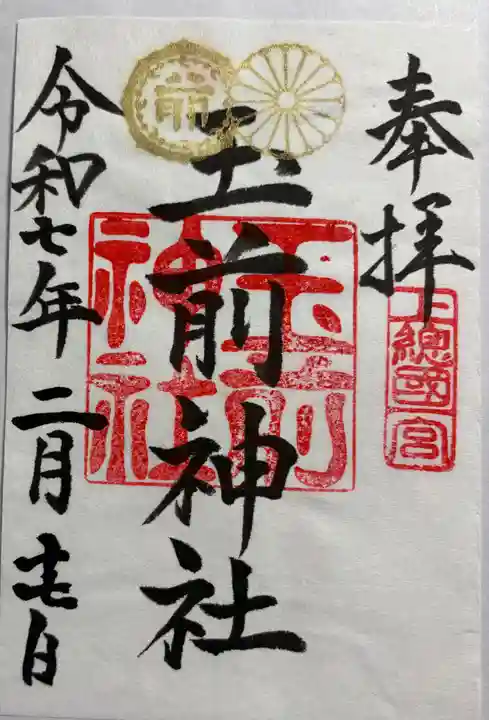 奉拝
上總國一宮
玉前神社
玉前神社
前
令和七年二月十七日